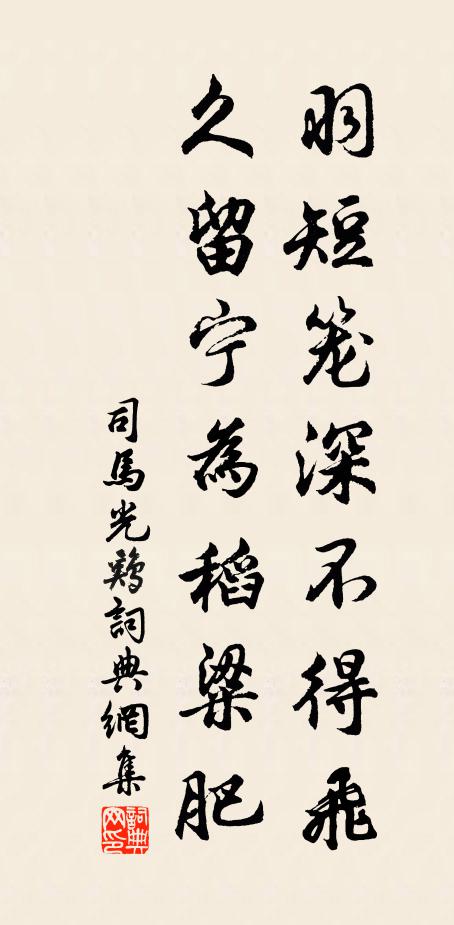 羽短笼深不得飛
久留宁為稻粱肥
司馬光鷄詞典網集
詞典网印